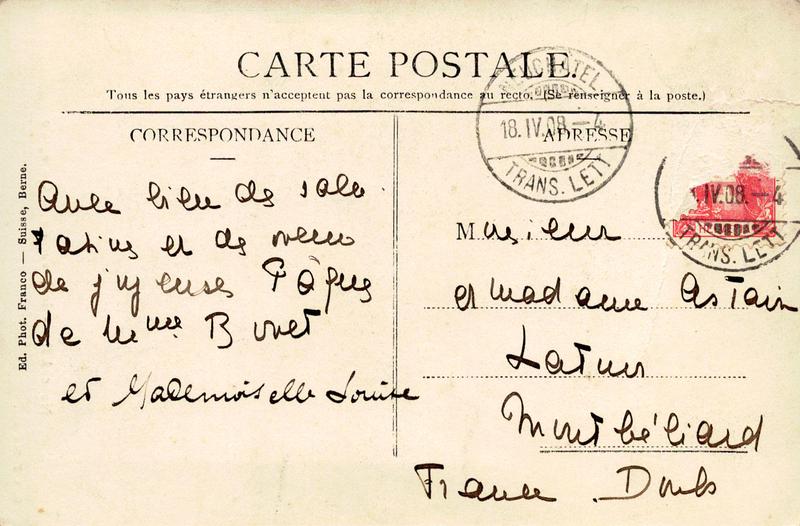 CARTE POSTALE.
Tous les pays étrangers n'acceptent pas la correspondance au recto. (Se renseigner à la poste.)
CORRESPONDANCE
ADRESSE
Ed. Phot. Franco — Suisse, Berne.
NEUCHATEL
18.IV.08.—4
TRANS. LETT
.IV.08.—4
TRANS. LETT
Avec bien de salu
tations et de voeux
de joyeuses Pâques
de Mme
et Mademoiselle Louise
Monsieur
et Madame
Montbéliard
France Doubs